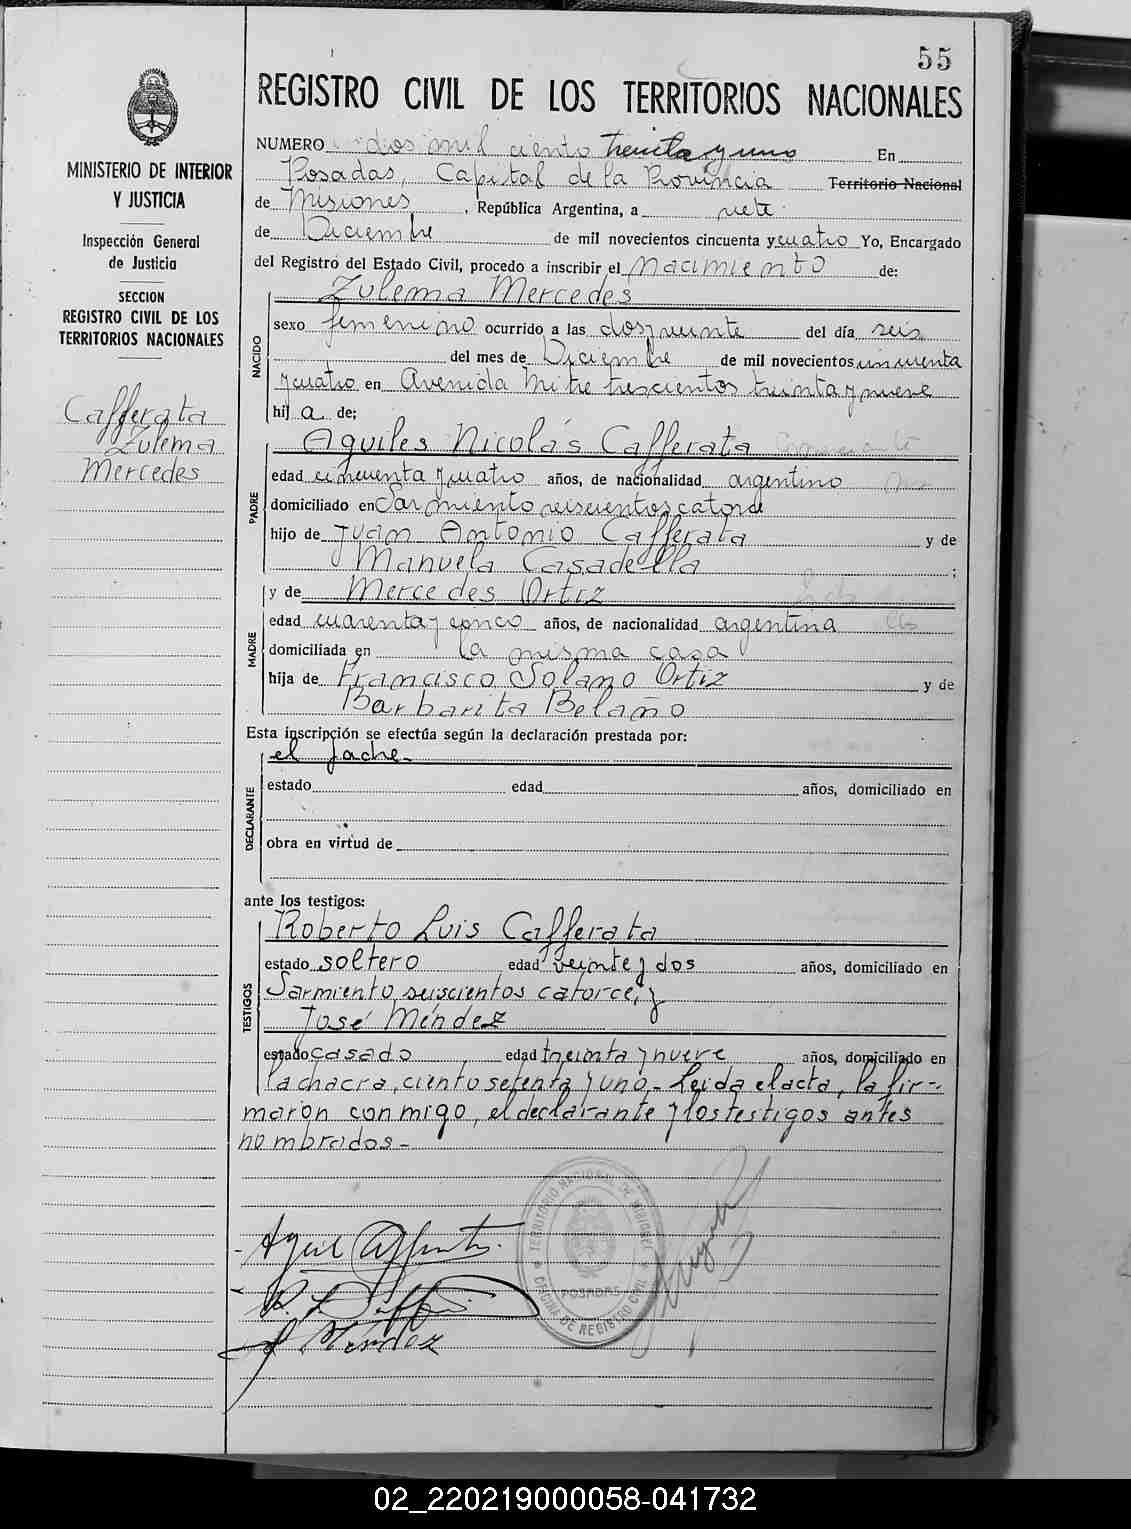 55
REGISTRO CIVIL DE LOS TERRITORIOS NACIONALES
MINISTERIO DE INTERIOR
Y JUSTICIA
Inspección General
de Justicia
SECCION
REGISTRO CIVIL DE LOS
TERRITORIOS NACIONALES
Cafferata
Zulema
Mercedes
NUMERO dos mil ciento treinta y uno En
Posadas, Capital de la Provincia Territorio Nacional
de Misiones, República Argentina, a siete
de Diciembre de mil novecientos cincuenta y cuatro Yo, Encargado
del Registro del Estado Civil, procedo a inscribir el Nacimiento de:
Zulema Mercedes
NACIDO
sexo femenino ocurrido a las dos y veinte del día seis
del mes de Diciembre de mil novecientos cincuenta
y cuatro en Avenida Mitre trescientos treinta y nueve
hij a de;
PADRE
Aquiles Nicolás Cafferata
edad cincuenta y cuatro años, de nacionalidad argentino
domiciliado en Sarmiento seiscientos catorce
hijo de Juan Antonio Cafferata y de
Manuela Casadella ;
MADRE
y de Mercedes Ortiz
edad cuarenta y cinco años, de nacionalidad argentina
domiciliada en la misma casa
hija de Francisco Solano Ortiz y de
Barbarita Belaño
Esta inscripción se efectúa según la declaración prestada por:
DECLARANTE
el padre
estado edad años, domiciliado en
obra en virtud de
ante los testigos:
TESTIGOS
Roberto Luis Cafferata
estado soltero edad veinte y dos años, domiciliado en
Sarmiento seiscientos catorce, y
José Méndez
estado casado edad treinta y nueve años, domiciliado en
la chacra, ciento setenta y uno.- Leida el acta, la fir-
maron conmigo, el declarante y los testigos antes
nombrados-
TERRITORIO NACIONAL DE MISIONES
POSADAS
OFICINA DE REGISTRO CIVIL
J Méndez
02_220219000058-041732